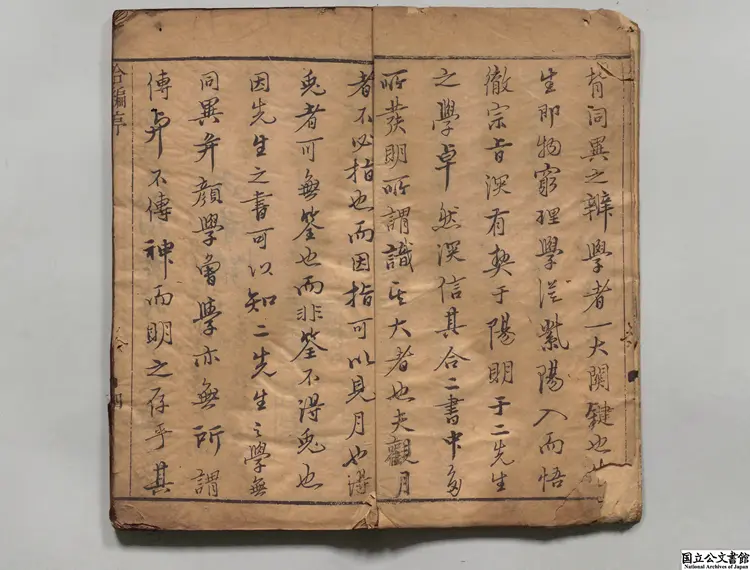 旨同異之辨學者一大關鍵也
生即物窮理學從紫陽入而悟
徹宗旨深有契于陽明于二先生
之學卓然深信其合二書中多
所發明所謂識其大者也夫觀月
者不必指也而因指可以見月也得
兎者可無筌也而非筌不得兎也
因先生之書可以知二先生之學無
同異并顔學魯學亦無所謂
傳與不傳神而明之存乎其
合編序
国立公文書館
National Archives of Japan